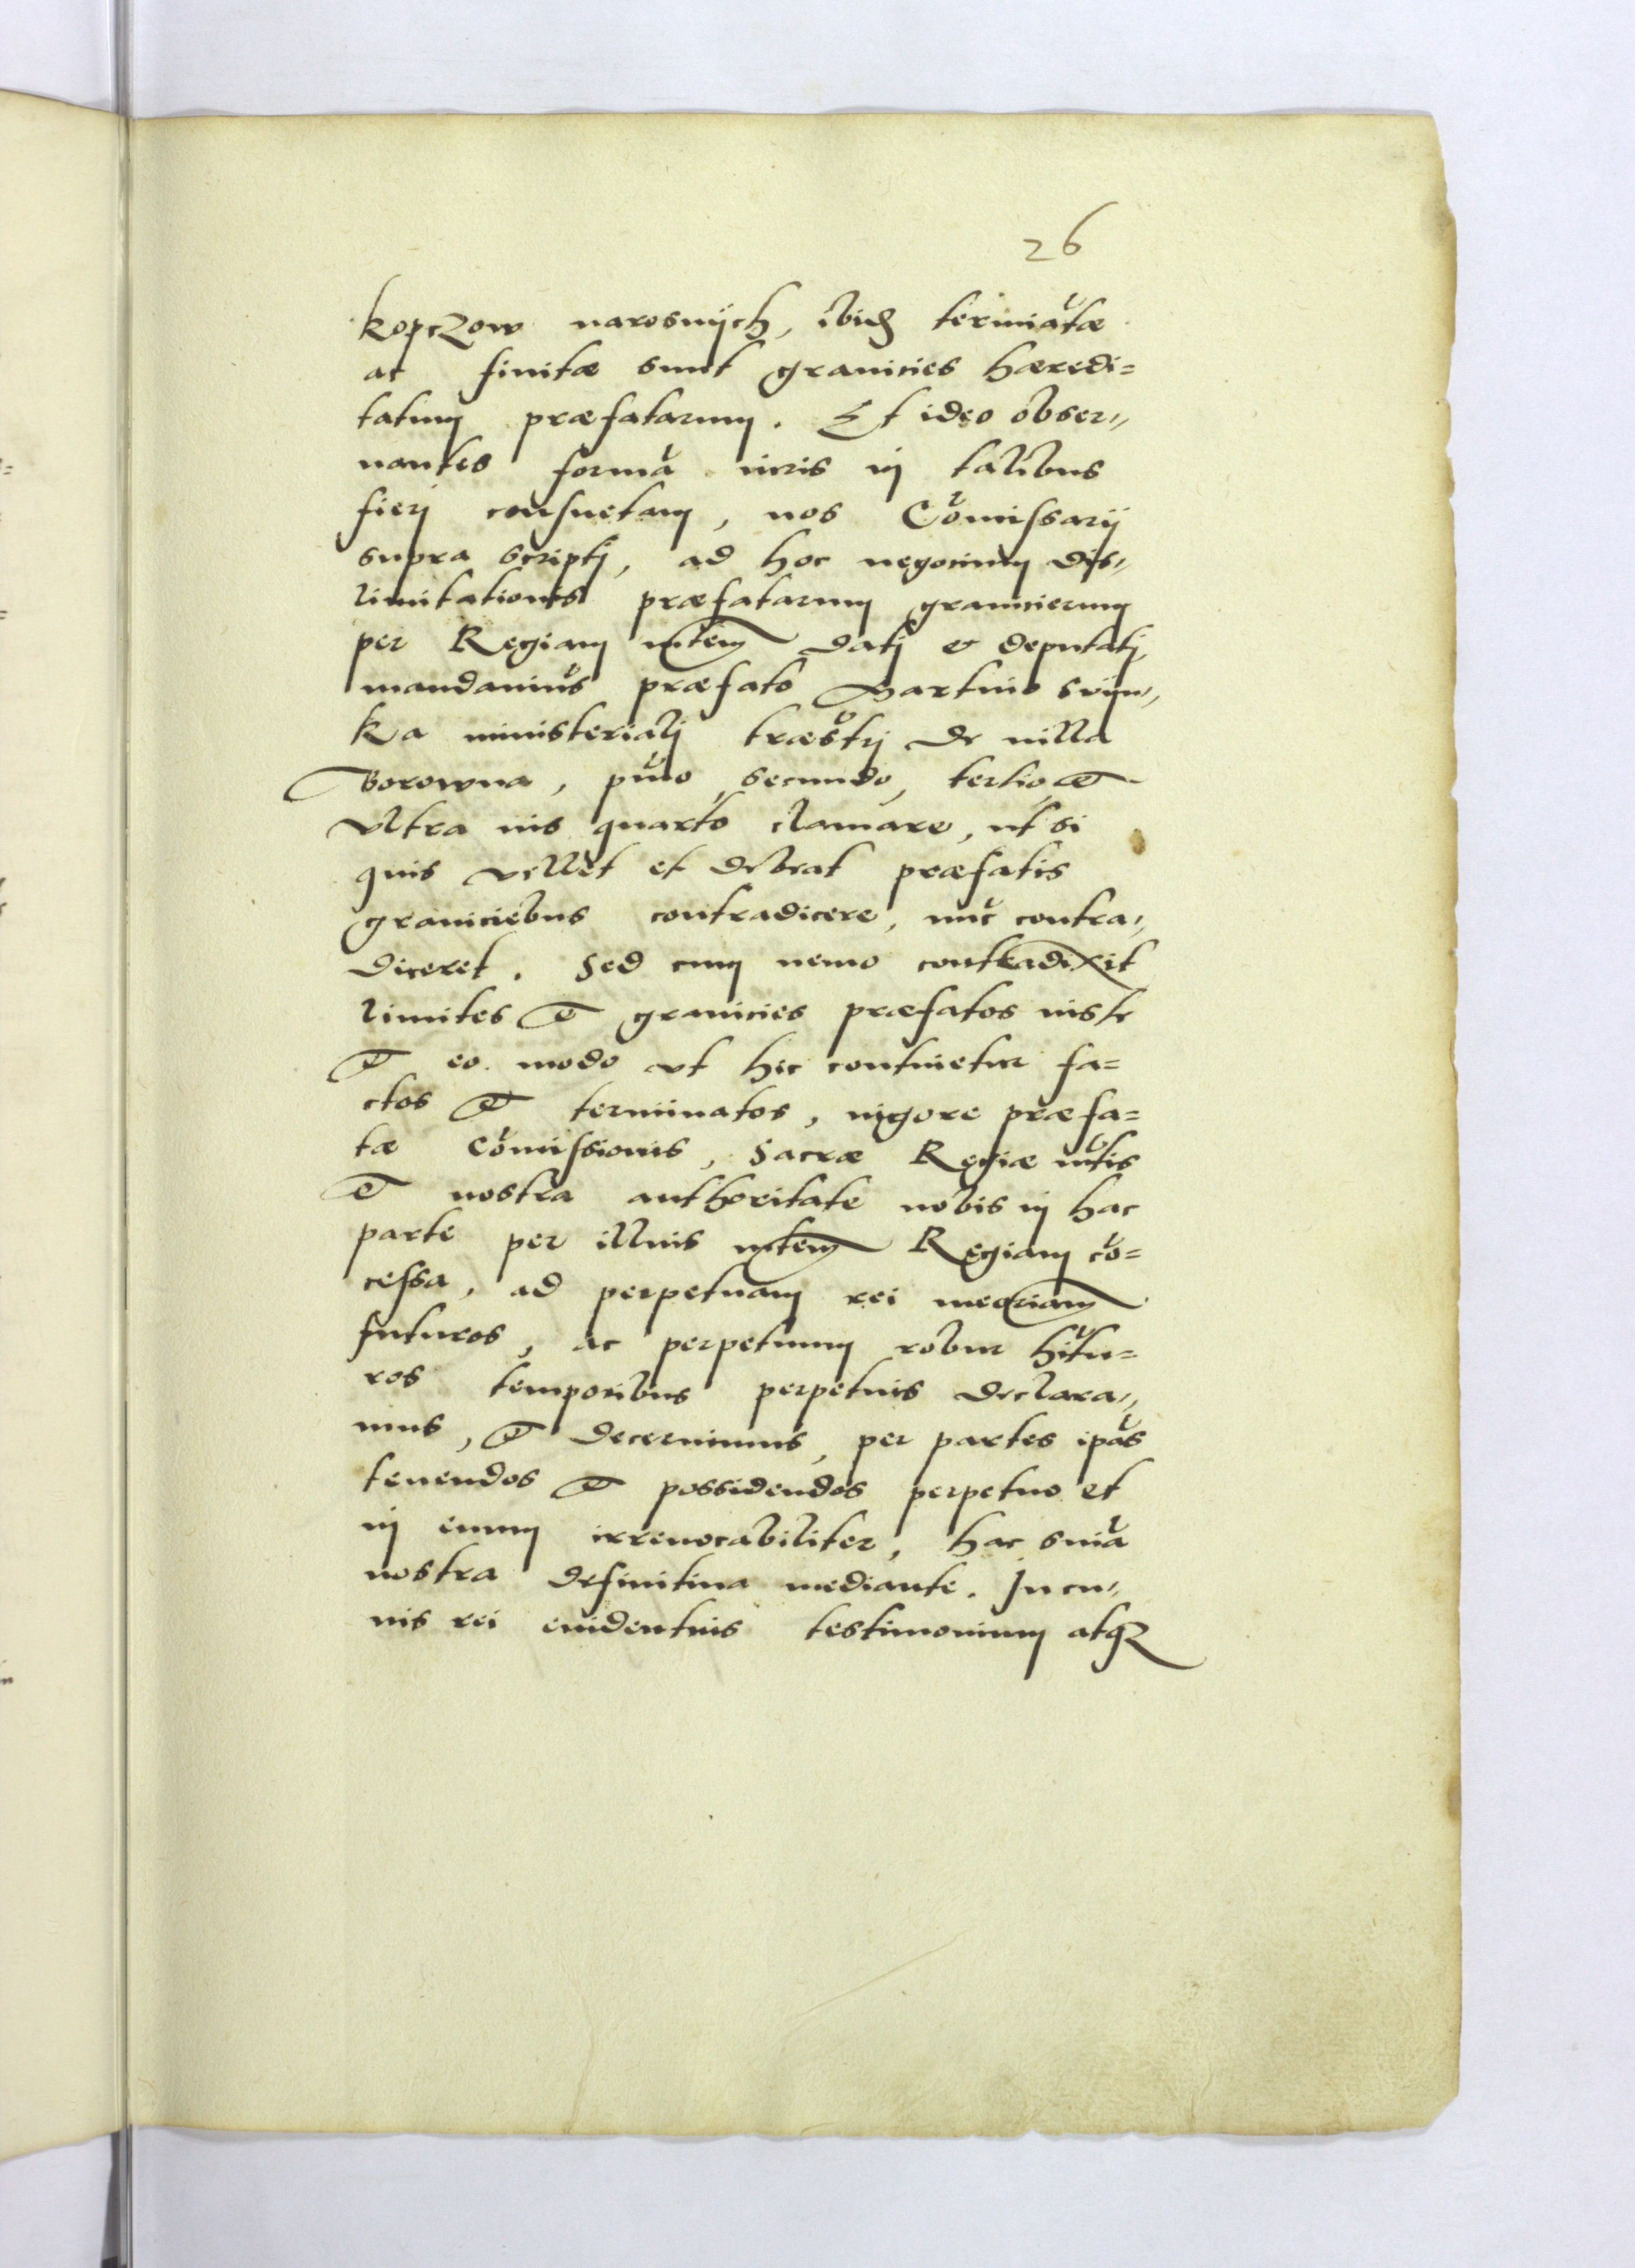 26
kopczow narosnijch, ibidẽ termiatæ
ac finitæ sunt granicies hæredi=
tatum præfatarum. Et ideo obser„
uantes formã iuris in talibus
fieri consuetam, nos Cõmissarij
supra scripti, ad hoc negocium dis„
limitationis præfatarum granicierum
per Regiam mtem dati & deputati,
mandauimũs præfato Martino
ka ministeriali træstri de uilla
Borowna, pũio secundo, tertio, et
ultra uis quarto clamare, ut si
quis vellet et debeat præfatis
graniciebus contradicere, nũc contra„
diceret. Sed cum nemo contradixit
limites et granicies præfatos iuste
et eo modo ut hic continetur fa=
ctos et terminatos, uigore præfa=
tæ Cõmissionis, Sacræ Regiæ mtis
et nostra authoritate nobis in hac
parte per illius mtem Regiam cõ=
cessa, ad perpetuam rei meoriam
futuros, ac perpetuum robur hitu=
ros temporibus perpetuis declara„
mus, et decernimus, per partes ipãs
tenendos et possidendos perpetuo et
in euum irreuocabiliter, hac sniã
nostra definitiua mediante. In cu„
ius rei euidentius testimonium atq3